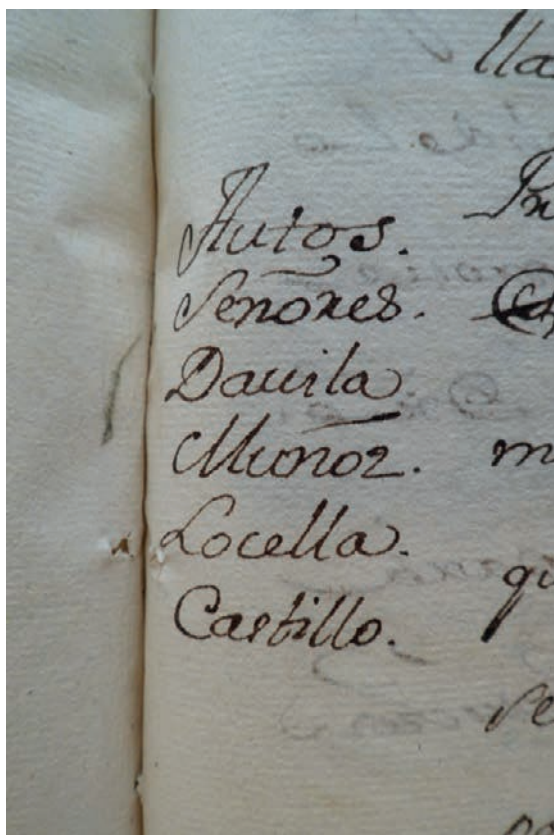 lla
Autos.
Señores.
Davila
Muñoz. m
Locella. qu
Castillo.
se